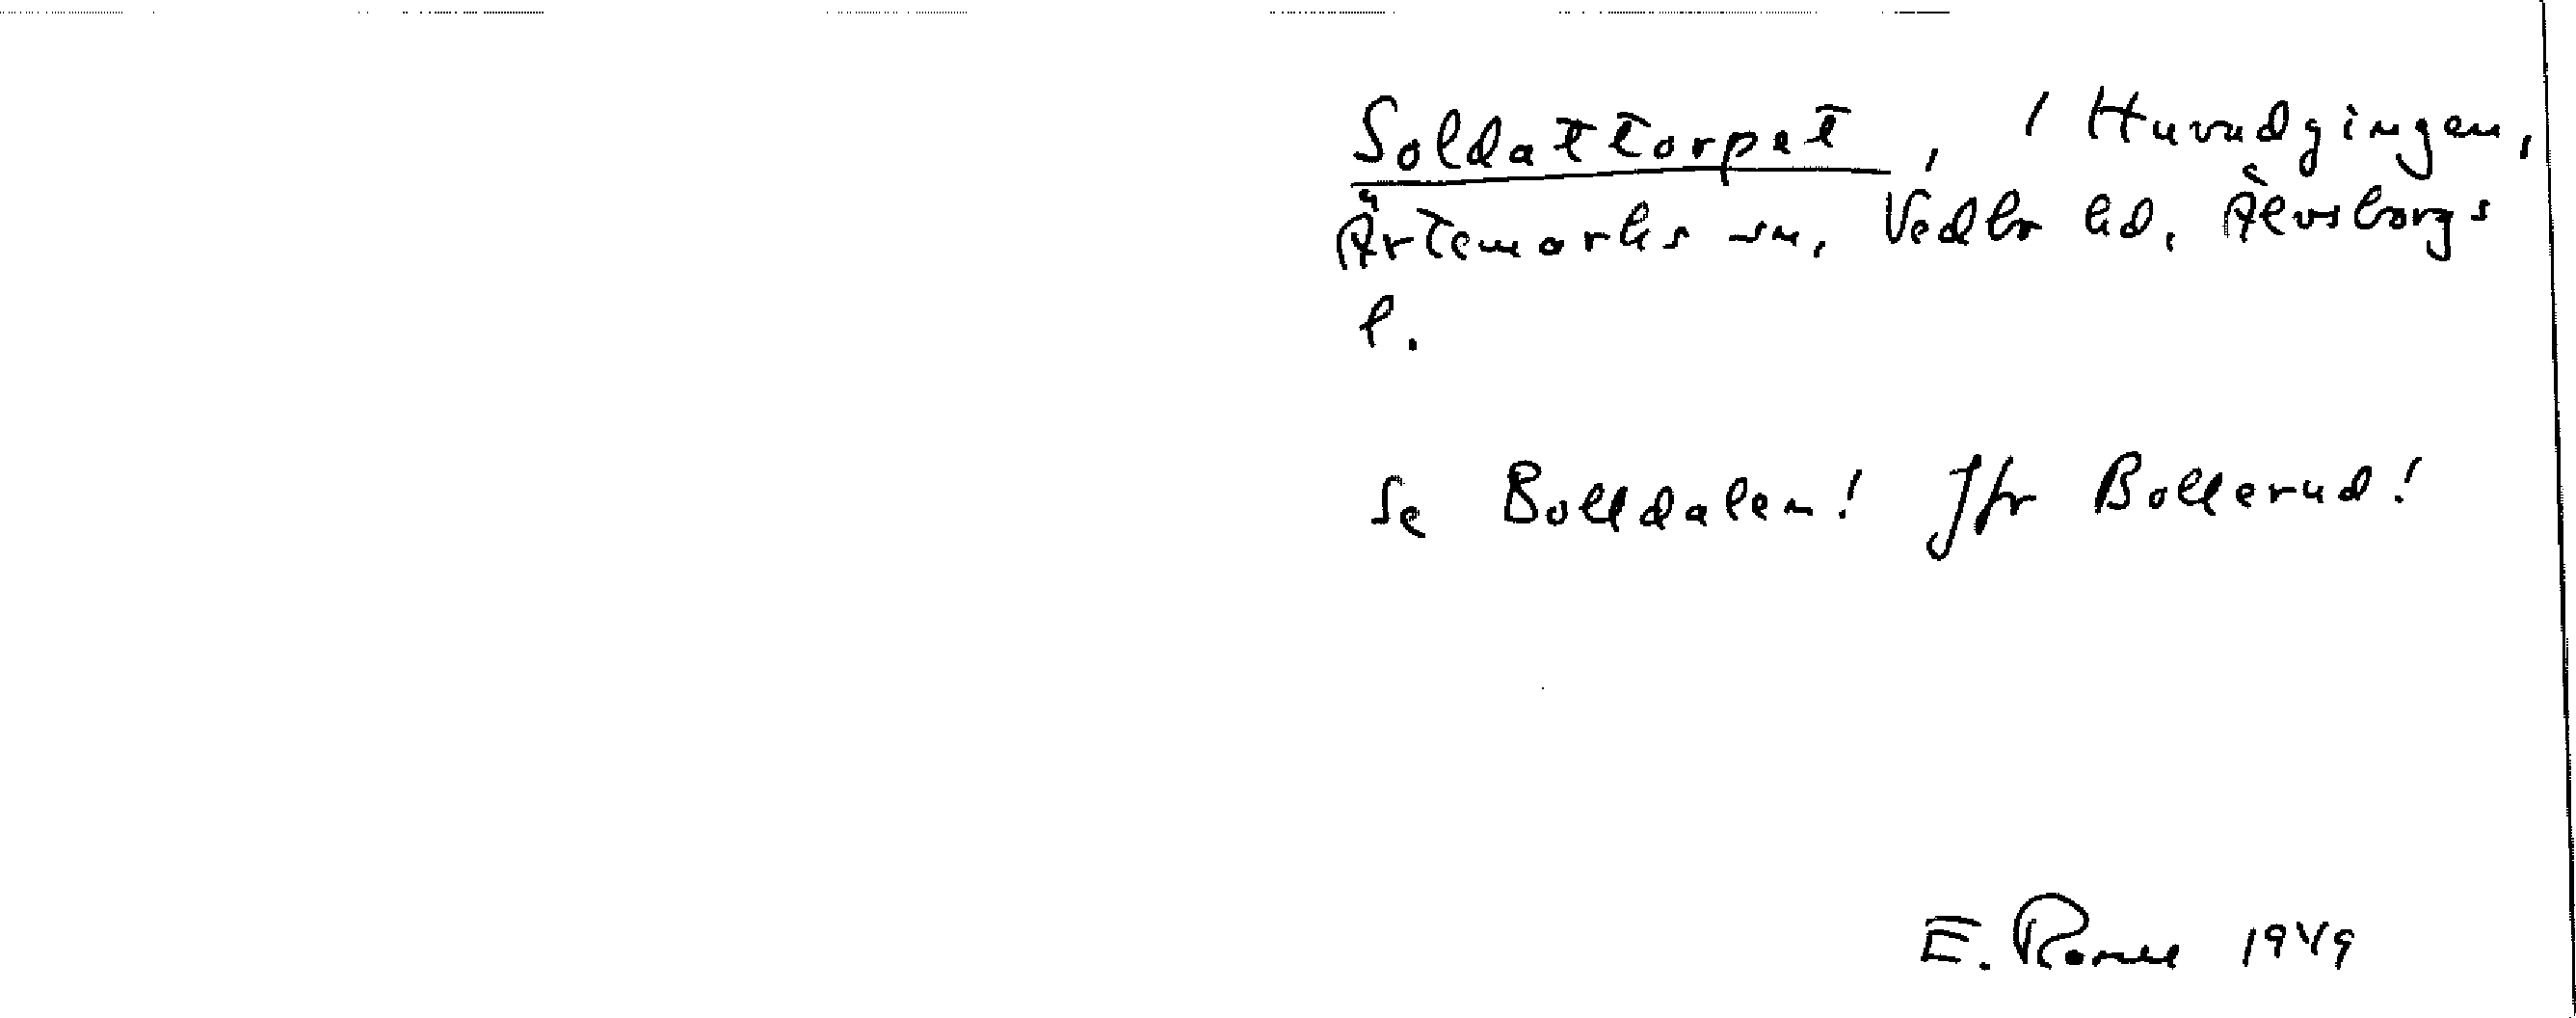 Soldattorpet, / Huvudgingen,
Ärtemarks sn, Vedbo hd, Älvsborgs
l.
Se Bolldalen! Jfr Bollerud!
E. 1949